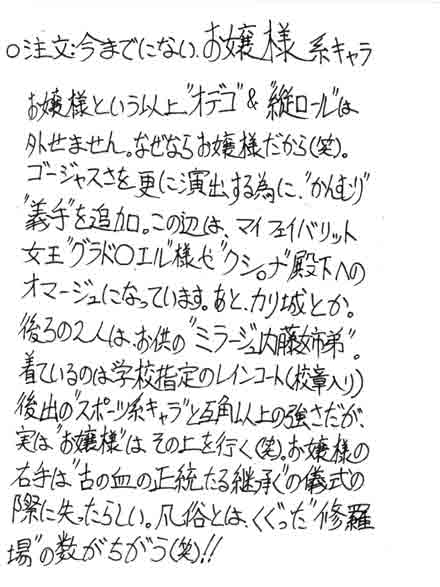 ○注文:今までにない、お嬢様系キャラ
お嬢様という以上"オデコ"&"縦ロール"は
外せません。なぜならお嬢様だから(笑)。
ゴージャスさを更に演出する為に、"かんむり"
"義手"を追加。この辺は、マイフェイバリット
女王"グラド○エル"様や"クシ○ナ"殿下への
オマージュになっています。あと、カリ城とか。
後ろの2人は、お供の"ミラージュ内藤姉弟"。
着ているのは学校指定のレインコート(校章入り)
後出の"スポーツ系キャラ"と互角以上の強さだが、
実は"お嬢様"はその上を行く(笑)。お嬢様の
右手は"古の血の正統たる継承"の儀式の
際に失ったらしい。凡俗とは、くぐった"修羅
場"の数がちがう(笑)!!